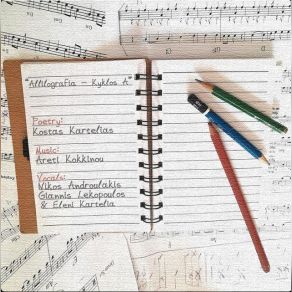 "Allilografia - Kyklos A"
Poetry:
Kostas Kartelias
Music:
Areti Kokkinou
Vocals:
Nikos Androulakis
Giannis Lekopoulos
& Eleni Kartelia